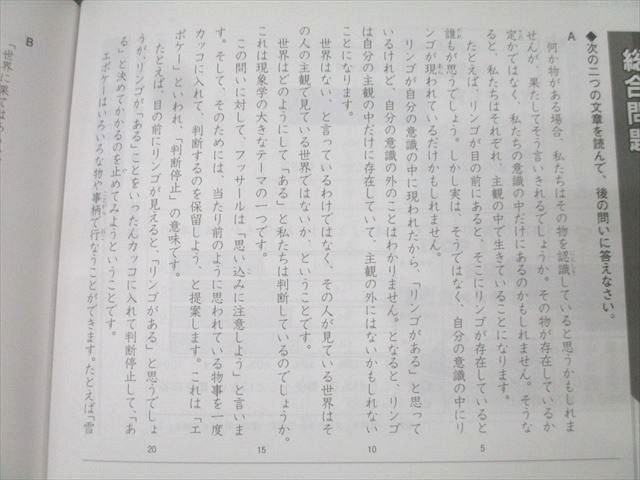 総合問題
◆次の二つの文章を読んで、後の問いに答えなさい。
A
何か物がある場合、私たちはその物を認識していると思うかもしれま
せんが、果たしてそう言いきれるでしょうか。その物が存在しているか
定かではなく、私たちの意識の中だけにあるのかもしれません。そうな
ると、私たちはそれぞれ、主観の中で生きていることになります。
たとえば、リンゴが目の前にあると、そこにリンゴが存在していると
誰もが思うでしょう。しかし実は、そうではなく、自分の意識の中にリ
ンゴが現われているだけかもしれません。
リンゴが自分の意識の中に現われたから、「リンゴがある」と思って
いるけれど、自分の意識の外のことはわかりません。となると、リンゴ
は自分の主観の中だけに存在していて、主観の外にはないかもしれない
ことになります。
世界はない、と言っているわけではなく、その人が見ている世界はそ
の人の主観で見ている世界ではないか、ということです。
世界はどのようにして「ある」と私たちは判断しているのでしょうか。
これは現象学の大きなテーマの一つです。
この問いに対して、フッサールは「思い込みに注意しよう」と言いま
す。そして、そのためには、当たり前のように思われている物事を一度
カッコに入れて、判断するのを保留しよう、と提案します。これは「エ
ポケー」といわれ、「判断停止」の意味です。
たとえば、目の前にリンゴが見えると、「リンゴがある」と思うでしょ
うが、リンゴが「ある」ことをいったんカッコに入れて判断停止して、「あ
る」と決めてかかるのを止めてみようということです。
エポケーはいろいろな物や事柄で行なうことができます。たとえば「雪
5
10
15
20
B
「世界に果てはあ